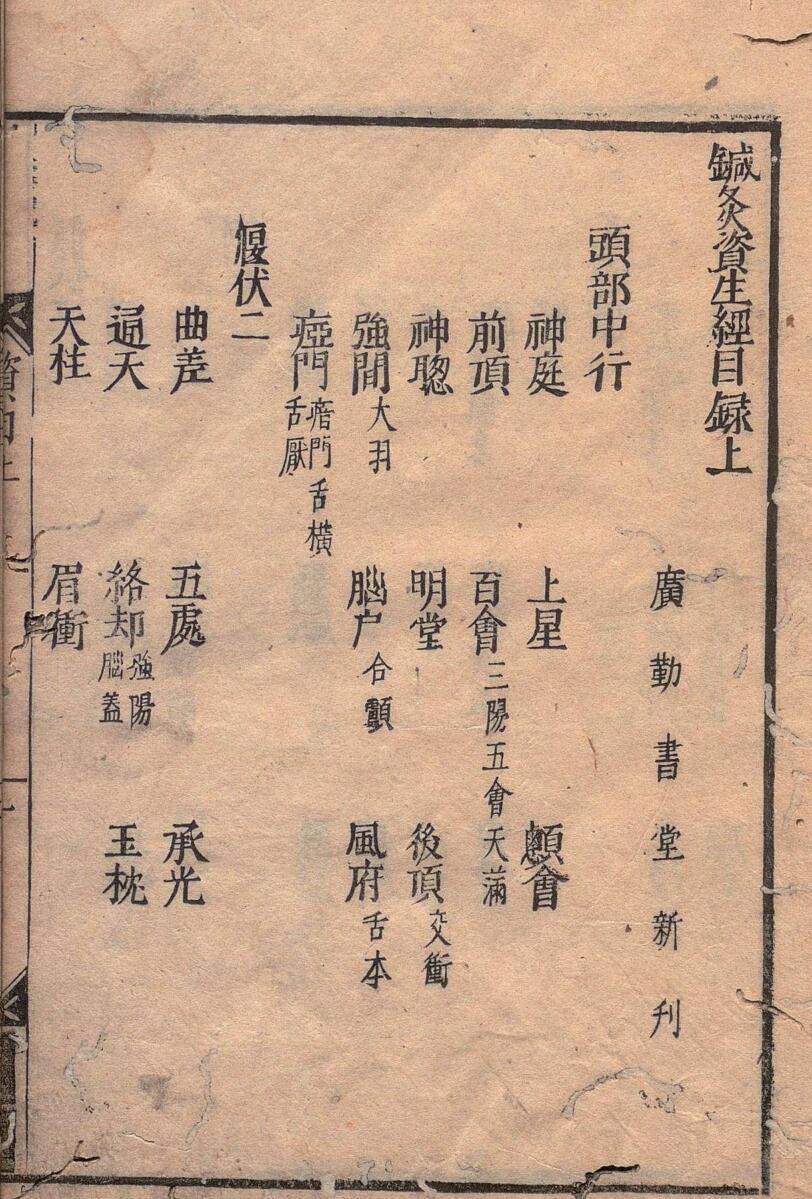 鍼灸資生經目録上
廣勤書堂新刋
頭部中行
神庭 上星 顖會
前頂 百會三陽五會天滿
神聰 明堂 後頂交衝
強間大羽 腦户合顱 風府舌本
瘂門瘖門舌橫舌厭
偃伏二
曲差 五處 承光
通天 絡却強陽腦蓋 玉枕
天柱 眉衝